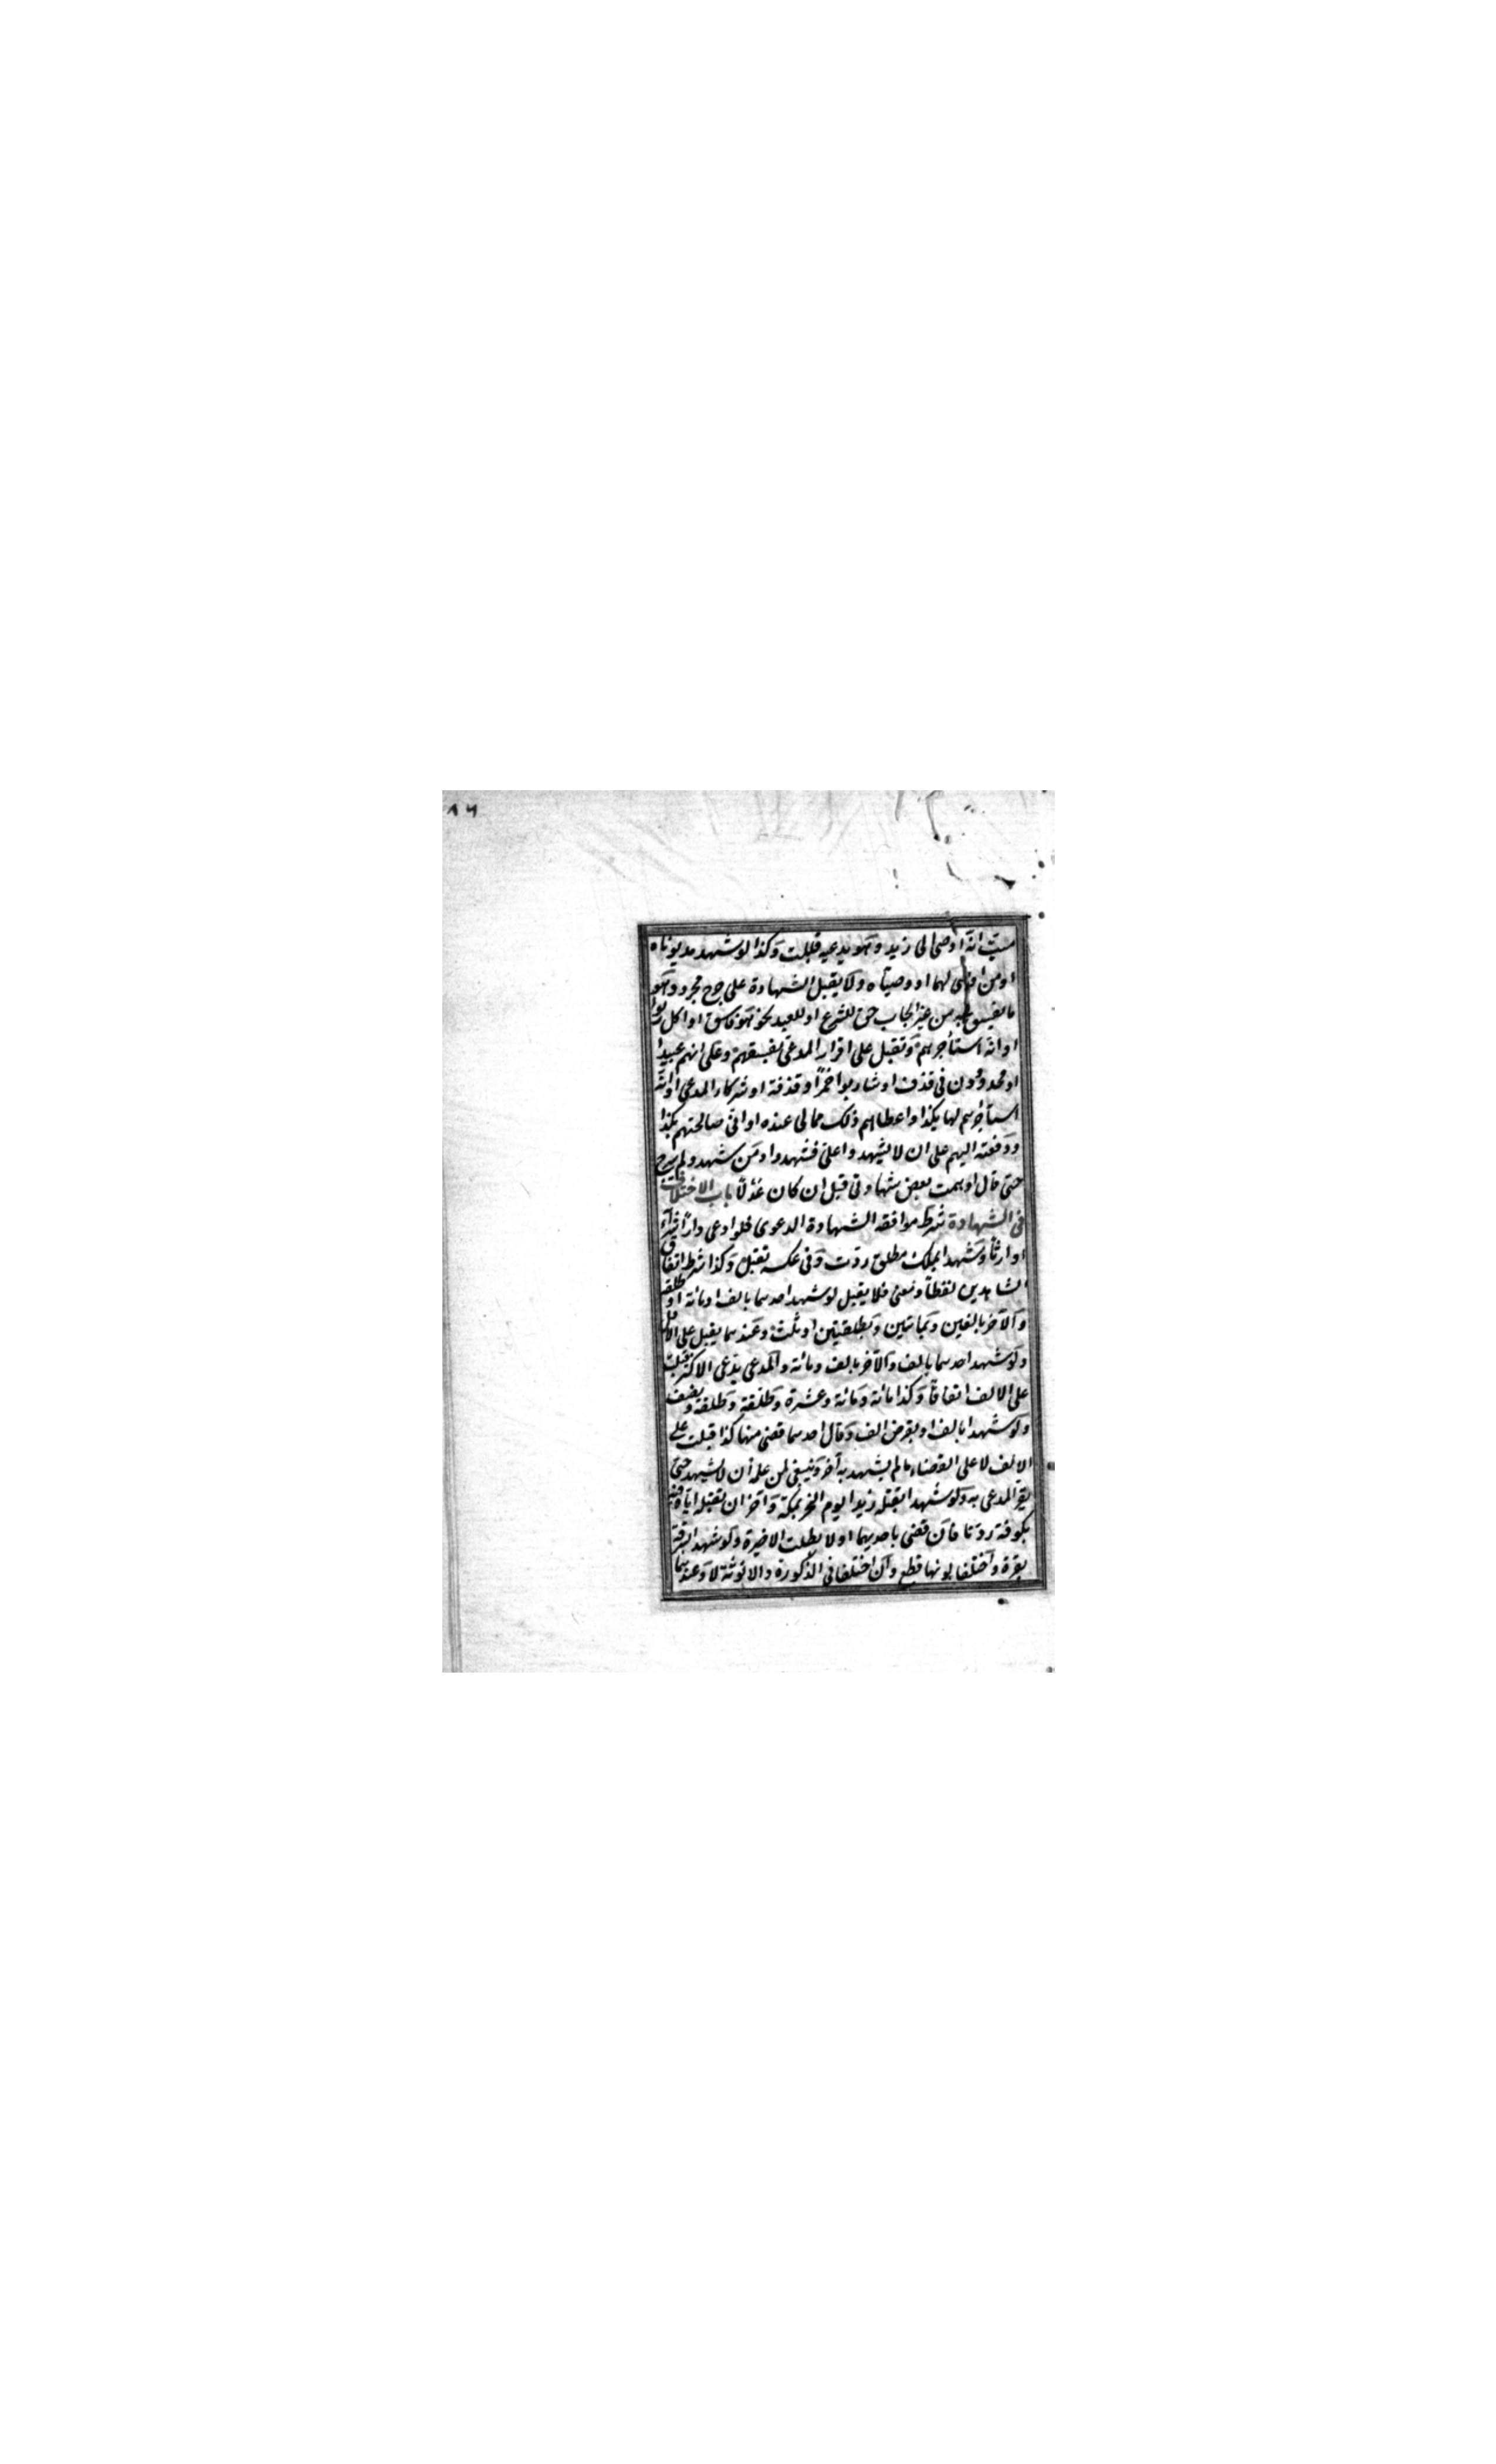 ٨٦
ميت انه اوصى الى زيد وهو يدعيه قبلت وكذا لو شهد مديوناه
او من اوصى لهما او وصياه ولا يقبل الشهادة على جرح مجرد وهو
ما يفسق به من غير ايجاب حق للشرع او للعبد نحو هو فاسق او اكل ربوا
او انه استأجرهم وتقبل على اقرار المدعى بفسقهم وعلى انهم عبيدا
او محدودون فى قذف او شاربوا خمرا وقذفة او شركاء المدعى او انه
استأجرهم لها بكذا واعطاهم ذلك مما لى عنده او انى صالحتهم بكذا
ودفعته اليهم على ان لا يشهدوا على فشهدوا ومن شهد ولم يبرح
حتى قال اوهمت بعض شهادتى قبل ان كان عدلا باب الاختلاف
فى الشهادة شرط موافقة الشهادة الدعوى فلو ادعى دارا شراء
او ارثا وشهدا بملك مطلق ردت وفى عكسه تقبل وكذا شرط اتفاق
الشاهدين لفظا ومعنى فلا يقبل لو شهد احدهما بالف او مائة او طلقة
والآخر بالفين وبمائتين وبطلقتين او ثلث وعندهما يقبل على الاقل
ولو شهد احدهما بالف والآخر بالف ومائة والمدعى يدعى الاكثر قبلت
على الالف اتفاقا وكذا مائة ومائة وعشرة وطلقة وطلقة ونصف
ولو شهدا بالف او بقرض الف وقال احدهما قضى منها كذا قبلت على
الالف لا على القضاء ما لم يشهد به آخر وينبغى لمن علمه ان لا يشهد حتى
يقر المدعى به ولو شهدا بقتله زيدا يوم النحر بمكة وآخران بقتله اياه فيه
بكوفة ردتا فان قضى باحديهما اولا بطلت الاخيرة ولو شهدا بسرقة
بقرة واختلفا بلونها قطع وان اختلفا فى الذكورة والانوثة لا وعندهما